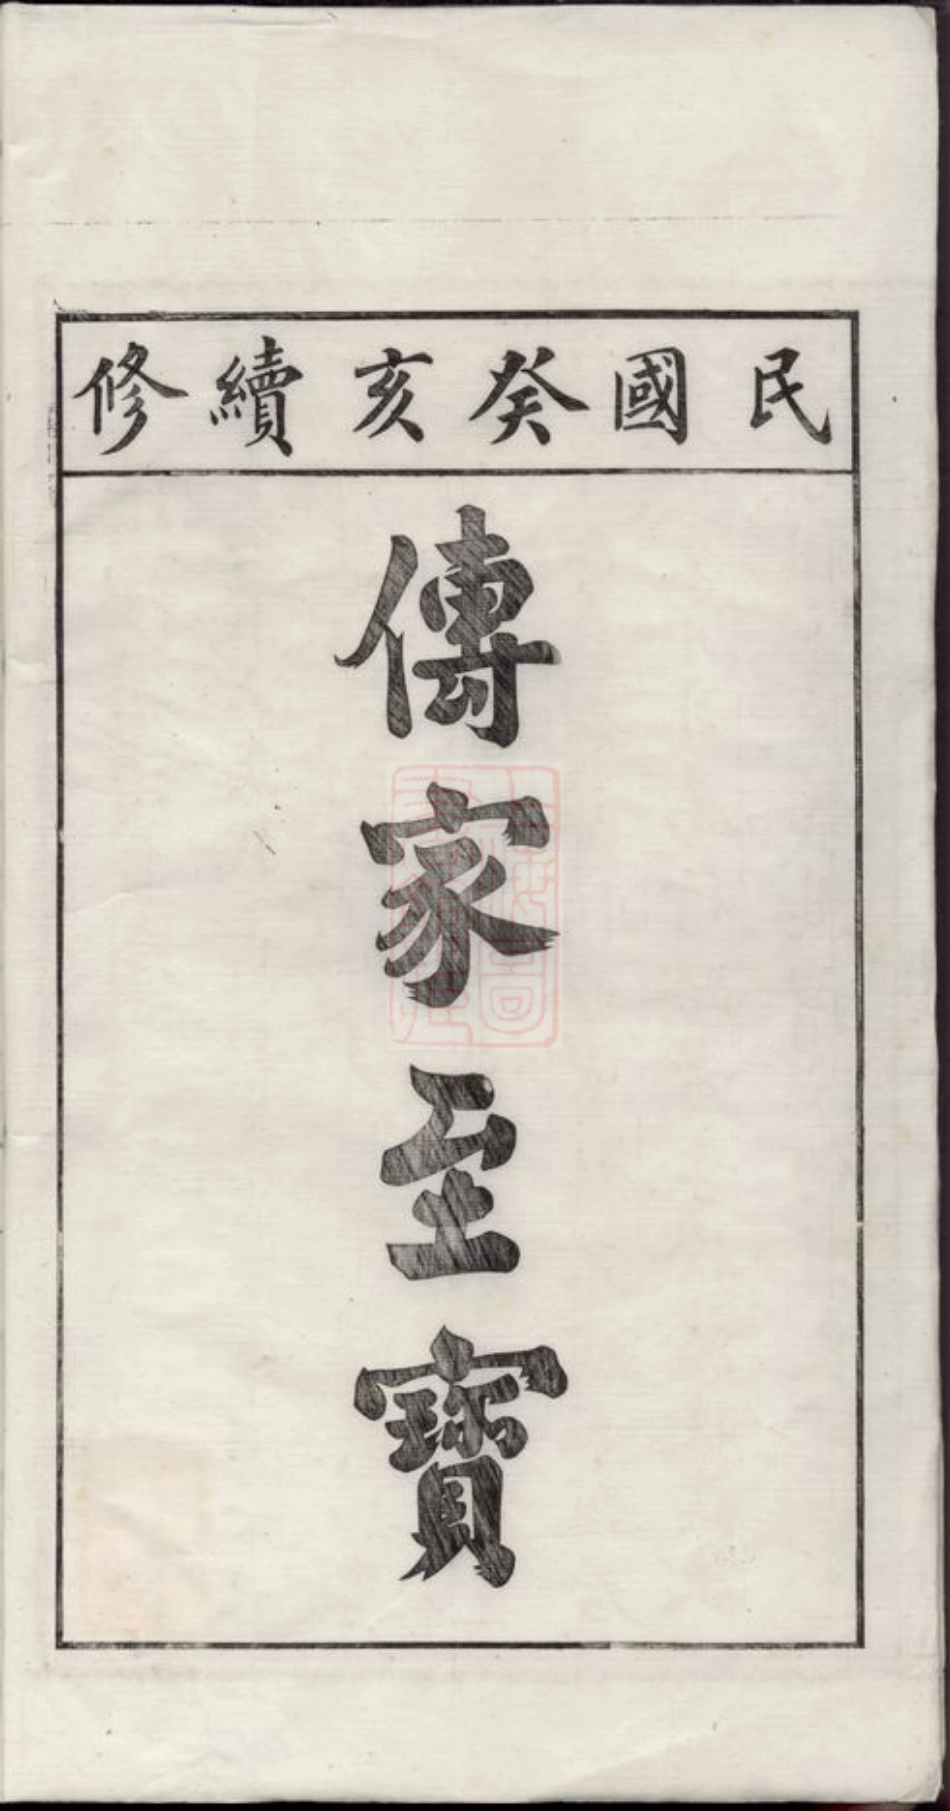 民國癸亥續修
傳家至寶